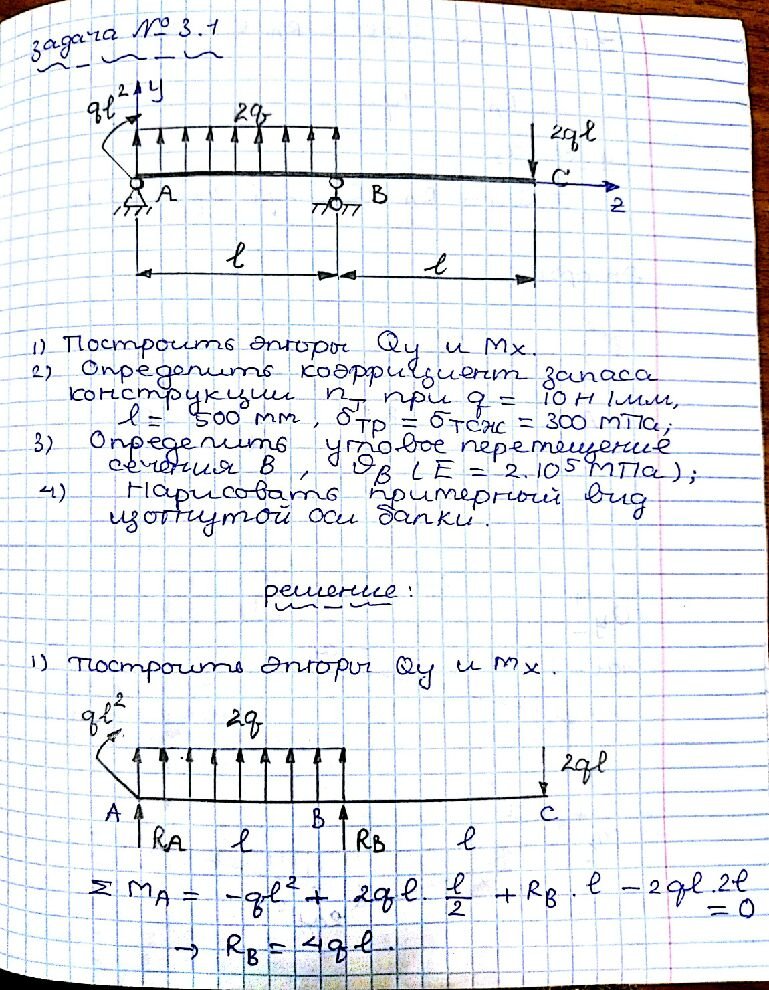 задача № 3.1
ql² y
2q
2ql
A B C z
l l
1) Построить эпюры Qy и Mx.
2) Определить коэффициент запаса
конструкции nт при q = 10 Н/мм,
l = 500 mm, σтр = σтсж = 300 МПа;
3) Определить угловое перемещение
сечения B, ϑB (E = 2.10⁵ МПа);
4) Нарисовать примерный вид
изогнутой оси балки.
решение:
1) Построить эпюры Qy и Mx.
ql² 2q
2ql
A B C
RA l RB l
Σ MA = -ql² + 2ql. l/2 + RB . l - 2ql.2l
= 0
→ RB = 4ql.